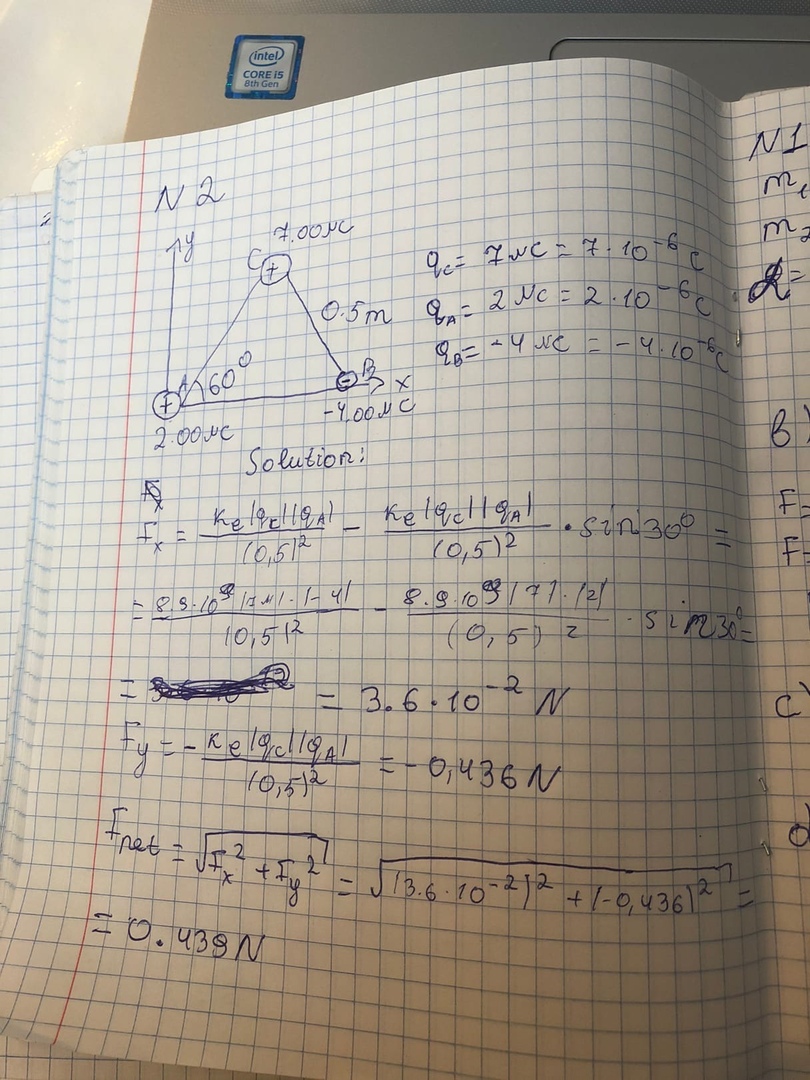 intel
CORE i5
8th Gen
N 2
y
C
7.00мC
0.5m
A
60°
B
x
2.00мC
-4.00мC
q_C = 7мC = 7·10⁻⁶ C
q_A = 2мC = 2·10⁻⁶ C
q_B = -4мC = -4·10⁻⁶ C
Solution:
F_x = K_e|q_C||q_A| / (0,5)² - K_e|q_C||q_A| / (0,5)² · sin30° =
= 8.9·10⁹ |7м|·|-4| / (0,5)² - 8.9·10⁹ |7|·|2| / (0,5)² · sin30° =
= = 3.6·10⁻² N
F_y = - K_e|q_C||q_A| / (0,5)² = -0,436 N
F_net = √(F_x² + F_y²) = √((3.6·10⁻²)² + (-0,436)²) =
= 0.439N
N1
m₁
m₂
=
B)
F=
F=
C)
d